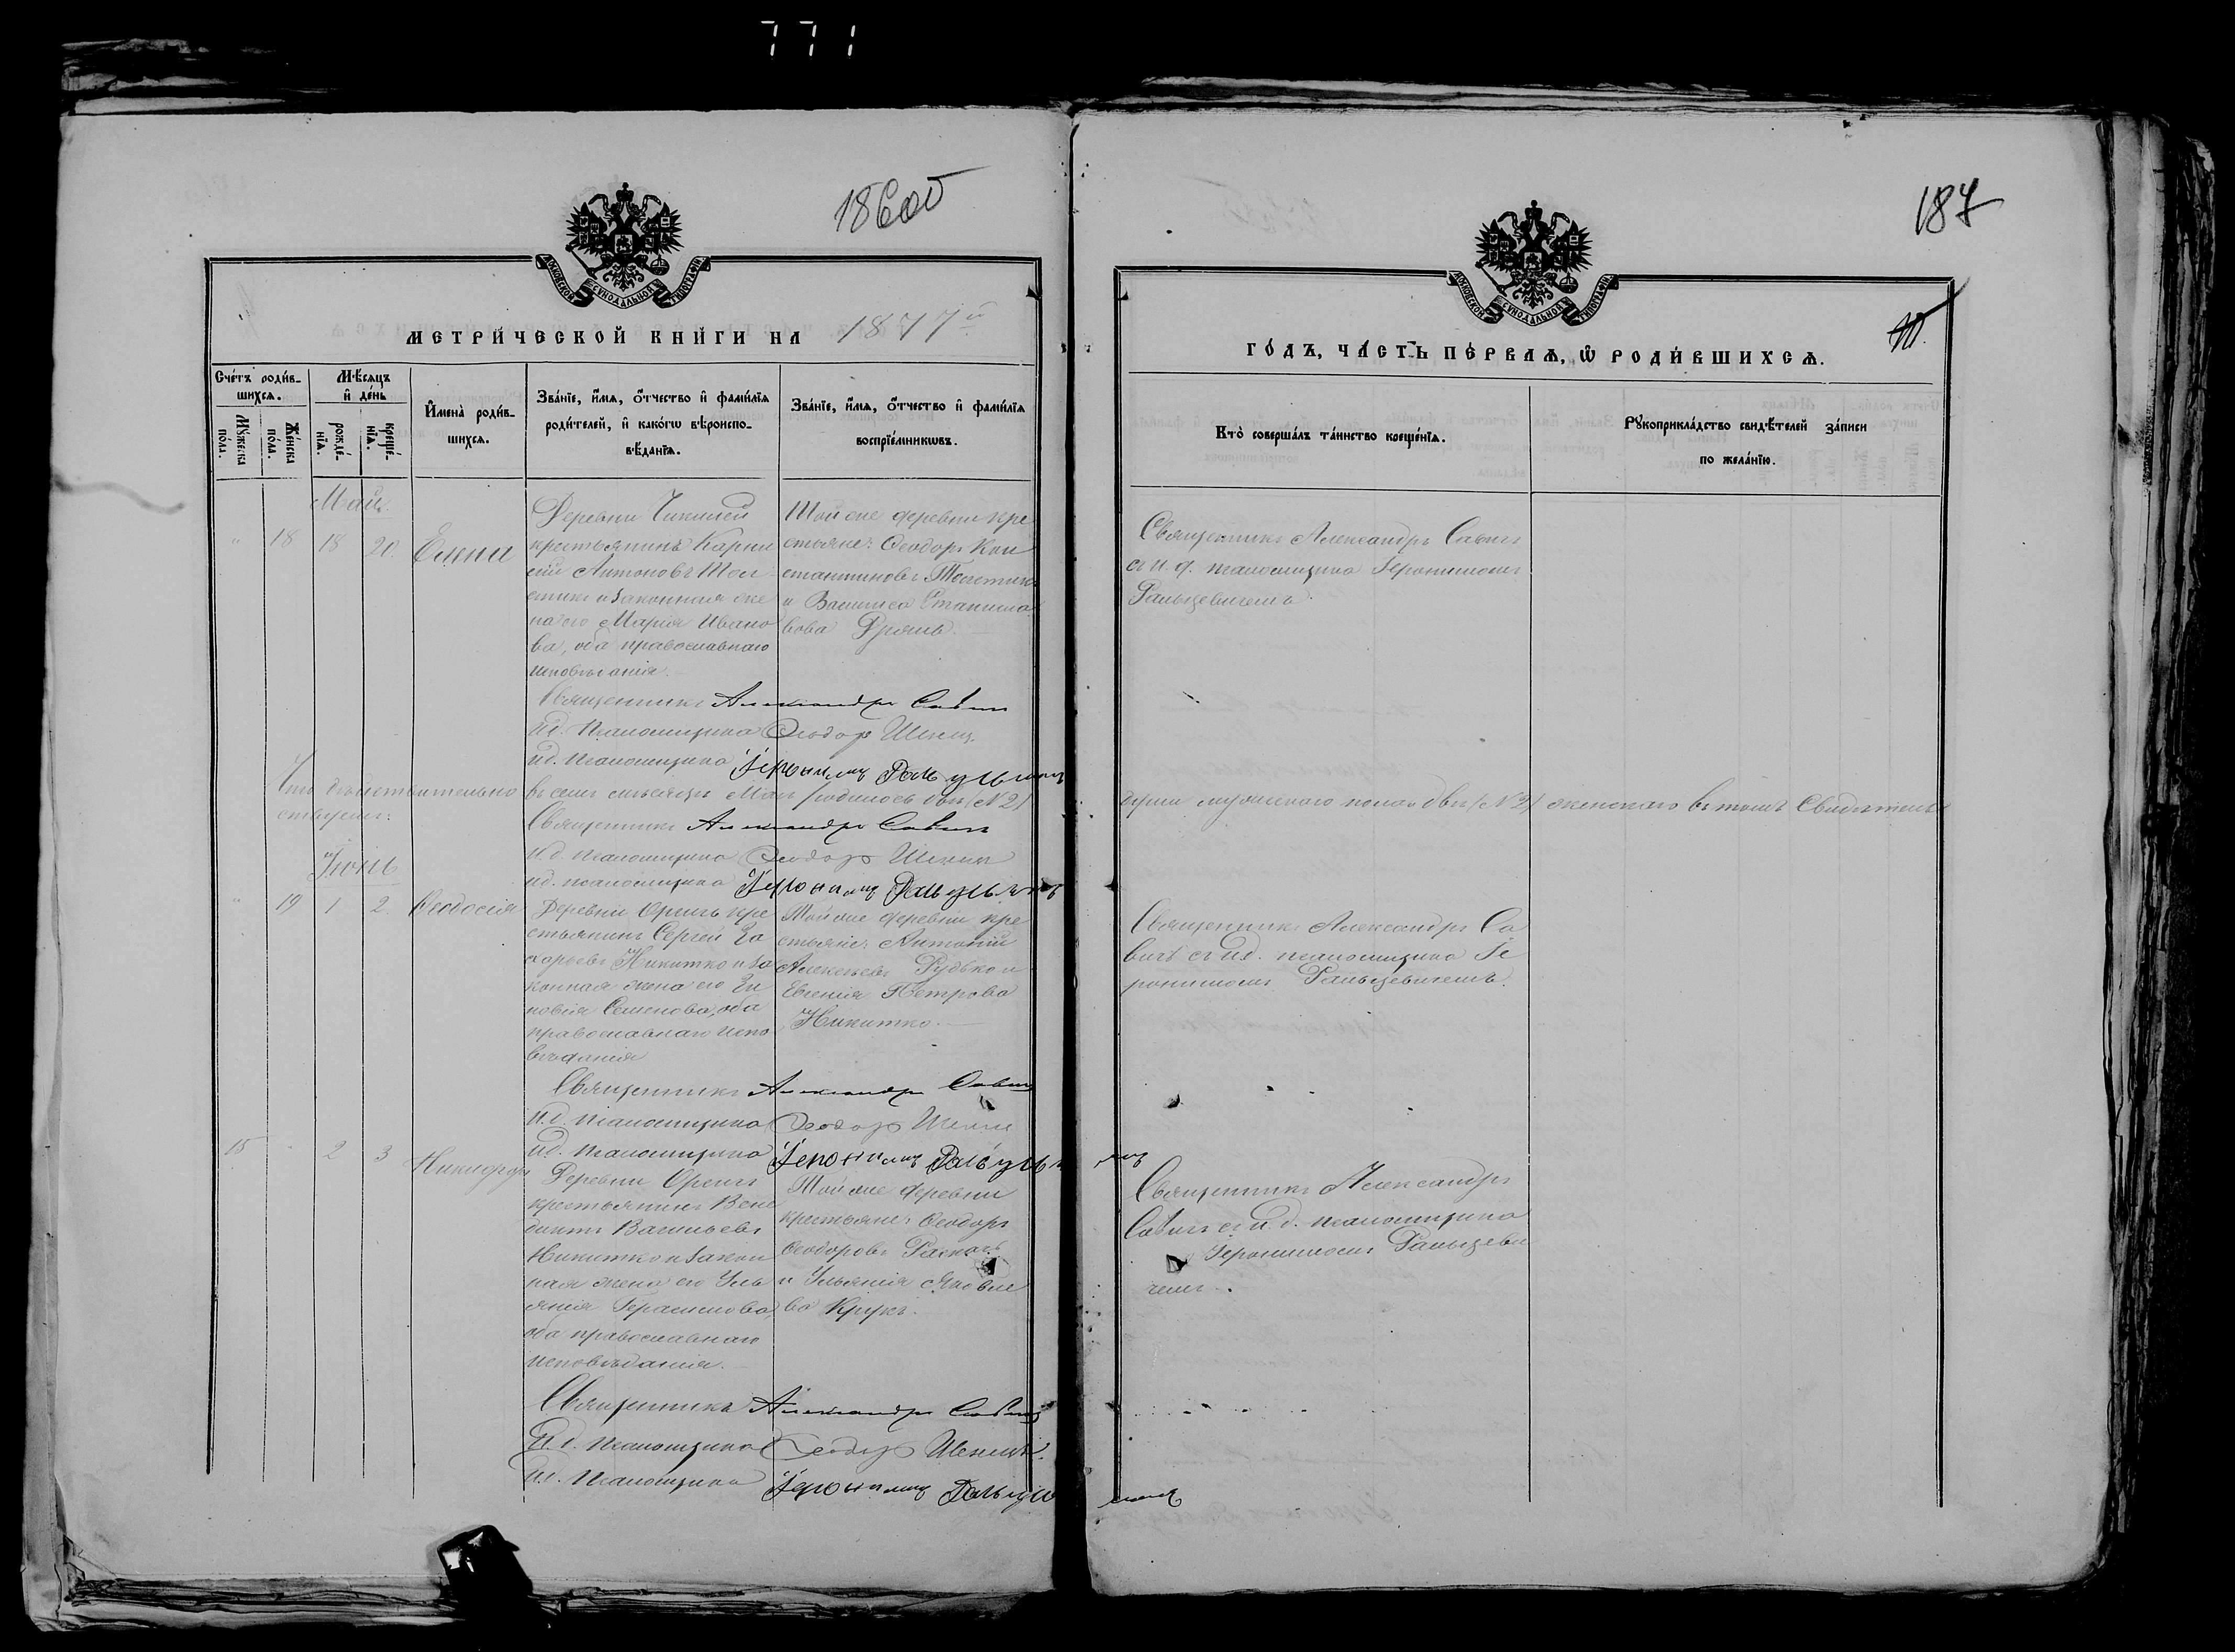 771
186об
187
МОСКОВСКОЙ СУНОДАЛЬНОЙ ТИПОГРАФІИ
МОСКОВСКОЙ СУНОДАЛЬНОЙ ТИПОГРАФІИ
МЕТРИ́ЧЕСКОЙ КНИ́ГИ НА 1877й
ГО́ДЪ, ЧА́СТЬ ПЕ́РВАѦ, Ѡ҆ РОДИ́ВШИХСѦ.
Сче́тъ роди́в-
шихсѧ.
Мꙋ́жеска
по́ла.
Же́нска
по́ла.
Мѣ́сѧцъ
и҆ де́нь
рожде́-
нїѧ.
креще́-
нїѧ.
И҆мена̀ роди́в-
шихсѧ.
Зва́нїе, и҆́мѧ, ѻ҆́тчество и҆ фами́лїѧ
роди́телей, и҆ како́гѡ вѣроиспо-
вѣ́данїѧ.
Зва́нїе, и҆́мѧ, ѻ҆́тчество и҆ фами́лїѧ
воспрїе́мникѡвъ.
Кто̀ соверша́лъ та́инство креще́нїѧ.
Рꙋкоприкла́дство свидѣ́телей за́писи
по жела́нїю.
Май
" 18 18 20.
Деревни
крестьянинъ
Антоновъ
и законная же
на его Марія Ивано
ва, оба православнаго
исповѣданія.
Той же деревни кре
стьяне: Ѳеодоръ Кон
стантиновъ
и Васили́са Станисла
вова
Священникъ Александръ Савичъ
съ и. д. псаломщика Іеронимомъ
Ральцевичемъ.
Священникъ Александръ Савичъ
и.д. псаломщика Ѳеодоръ
и.д. псаломщика Іеронимъ Ральцевичъ
Что дѣйствительно въ семъ мѣсяцѣ Маѣ родилось двѣ (№2) души мужескаго пола и двѣ (№2) женскаго въ томъ Свидѣтель
ствуемъ:
Священникъ Александръ Савичъ
и.д. псаломщика Ѳеодоръ
и.д. псаломщика Іеронимъ Ральцевичъ
Іюнь
" 19 1 2. Ѳеодосія
кре
стьянинъ Сергей За
харьевъ Никитко и за
конная жена его Зи
новія Семенова, оба
православнаго испо
вѣданія
Той же деревни кре
стьяне: Антоній
Алексѣевъ Рудько и
Евгенія Петрова
Никитко.
Священникъ Александръ Са
вичъ съ и.д. псаломщика Іе
ронимомъ Ральцевичемъ.
Священникъ Александръ Савичъ
и.д. псаломщика Ѳеодоръ
и.д. псаломщика Іеронимъ Ральцевичъ
15 " 2 3 Никифоръ
Деревни
крестьянинъ Вене
диктъ Васильевъ
Никитко и закон
ная жена его Уль
янія Герасимова,
оба православнаго
исповѣданія.
Той же деревни
крестьяне: Ѳеодоръ
Ѳеодоровъ
и Ульянія Яковле
ва Крукъ.
Священникъ Александръ
Савичъ съ и.д. псаломщика
Іеронимомъ Ральцеви
чемъ.
Священникъ Александръ Савичъ
и.д. псаломщика Ѳеодоръ
и.д. псаломщика Іеронимъ Ральцевичъ